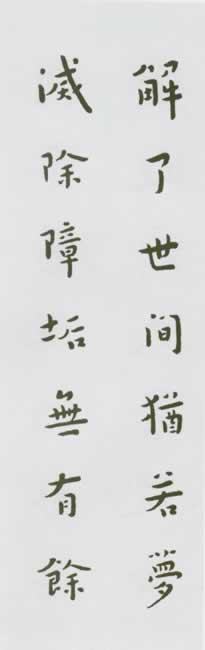 解了世间猶若夢
滅除障垢無有餘